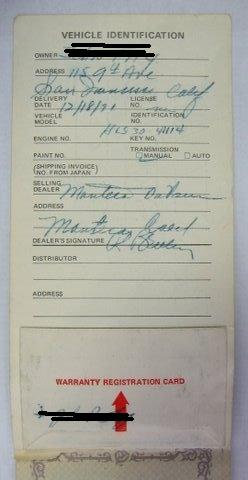 VEHICLE IDENTIFICATION
OWNER
ADDRESS 115 9th Ave
San Francisco Calif
DELIVERY DATE 12/18/71 LICENSE NO.
VEHICLE MODEL IDENTIFICATION NO.
HLS30 41114
ENGINE NO. KEY NO.
TRANSMISSION
PAINT NO. MANUAL AUTO
(SHIPPING INVOICE)
NO. FROM JAPAN
SELLING DEALER Manteca Datsun
ADDRESS
Manteca Calif
DEALER'S SIGNATURE
DISTRIBUTOR
ADDRESS
WARRANTY REGISTRATION CARD